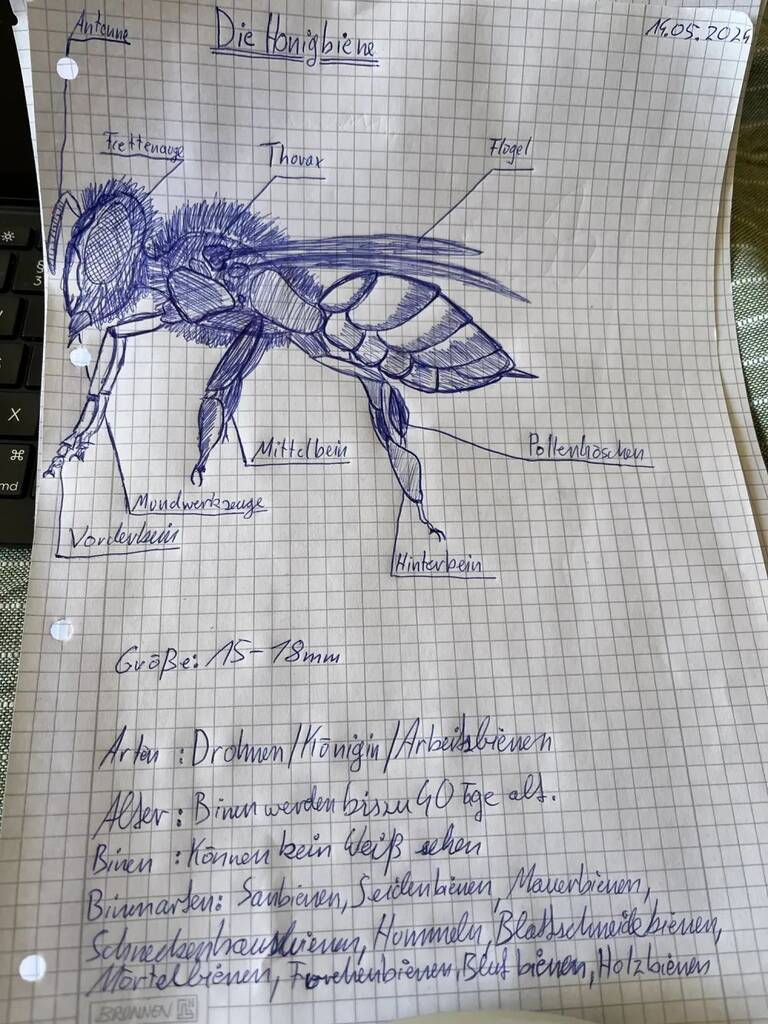 Antenne
Die Honigbiene
14.05.2024
Fecettenauge
Thorax
Flügel
Mittelbein
Pollenhöschen
Mundwerkzeuge
Vorderbein
Hinterbein
Größe: 15-18mm
Arten : Drohnen/Königin/Arbeitsbienen
Alter : Binen werden bis zu 40 Tage alt.
Binen : Können kein Weiß sehen
Binenarten: Sanbienen, Seidenbienen, Mauerbienen,
Schneckenhausbienen, Hummeln, Blattschneidebienen,
Mörtelbienen, Furchenbienen, Blutbienen, Holzbienen
BRUNNEN